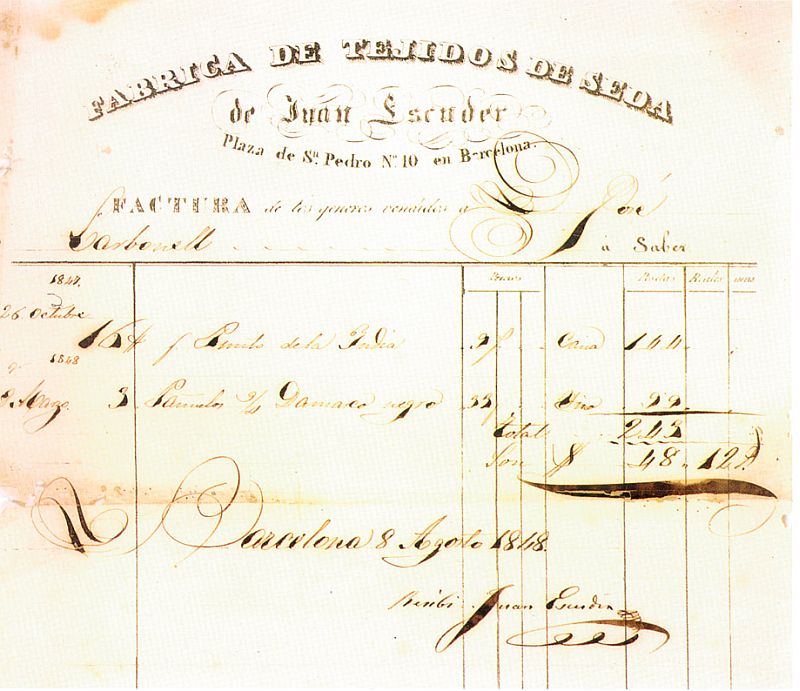 FABRICA DE TEJIDOS DE SEDA
de Juan Escuder
Plaza de Sn. Pedro No. 10 en Barcelona.
FACTURA de los generos vendidos a Dn. José
Carbonell à Saber
Precios Pesetas Reales mrs
1847.
26 Octubre
16 Punto de la India 9 Cana 144
1848
8 Mayo. 3 Pañuelos 9/4 Damasco negro 33 Uno 99
total 243
Son $ 48 12
Barcelona 8 Agosto 1848.
Recibi Juan Escuder